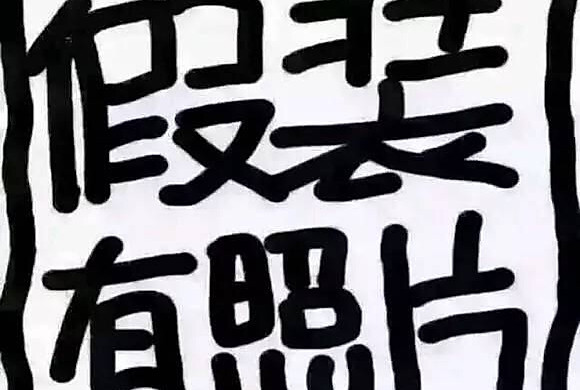 假装
有照片